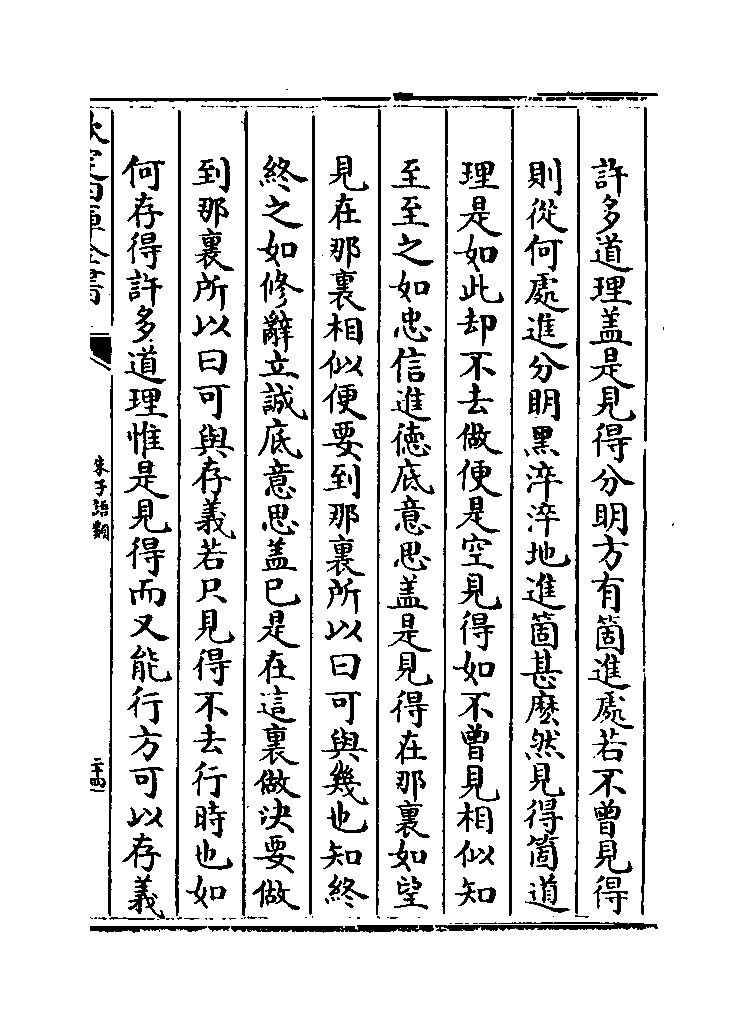 許多道理盖是見得分明方有箇進處若不曾見得
則從何處進分明黒淬淬地進箇甚麽然見得箇道
理是如此却不去做便是空見得如不曾見相似知
至至之如忠信進徳底意思盖是見得在那裏如望
見在那裏相似便要到那裏所以曰可與幾也知終
終之如修辭立誠底意思盖已是在這裏做决要做
到那裏所以曰可與存義若只見得不去行時也如
何存得許多道理惟是見得而又能行方可以存義
欽定四庫全書
朱子語類
二十四